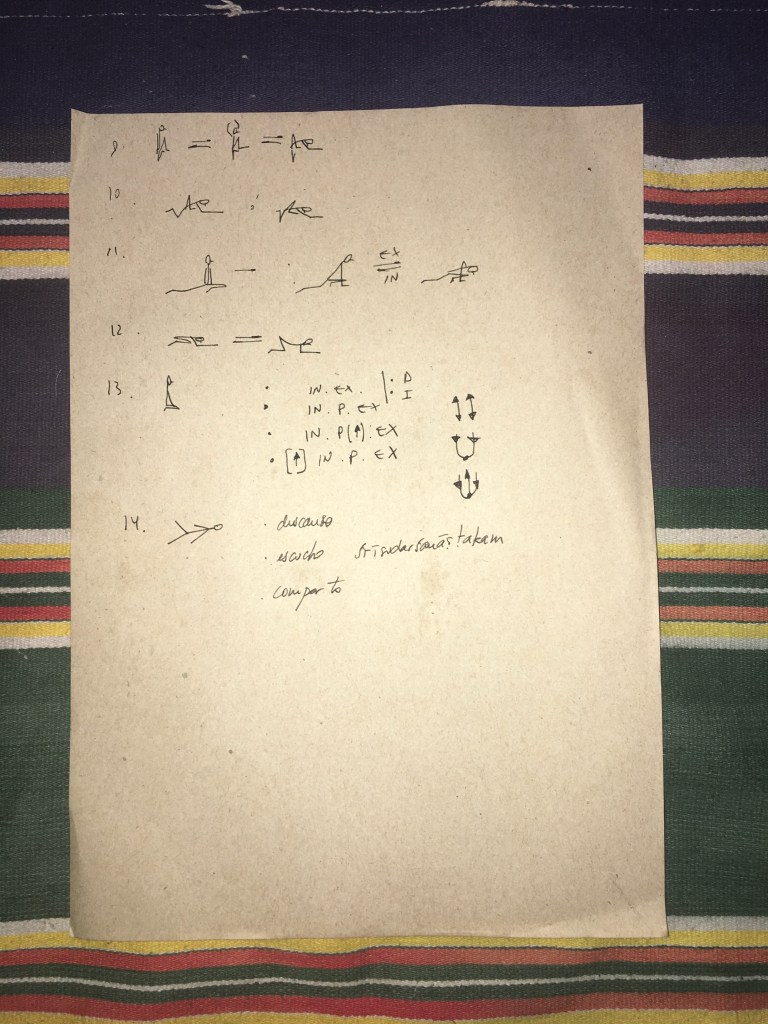 9. = =
10. :
11. — : EX IN
12. =
13. · IN. EX. | : D : I
· IN. P. EX
· IN. P(↑). EX
· [↑] IN. P. EX
14. · descanso
· escucho
· comparto